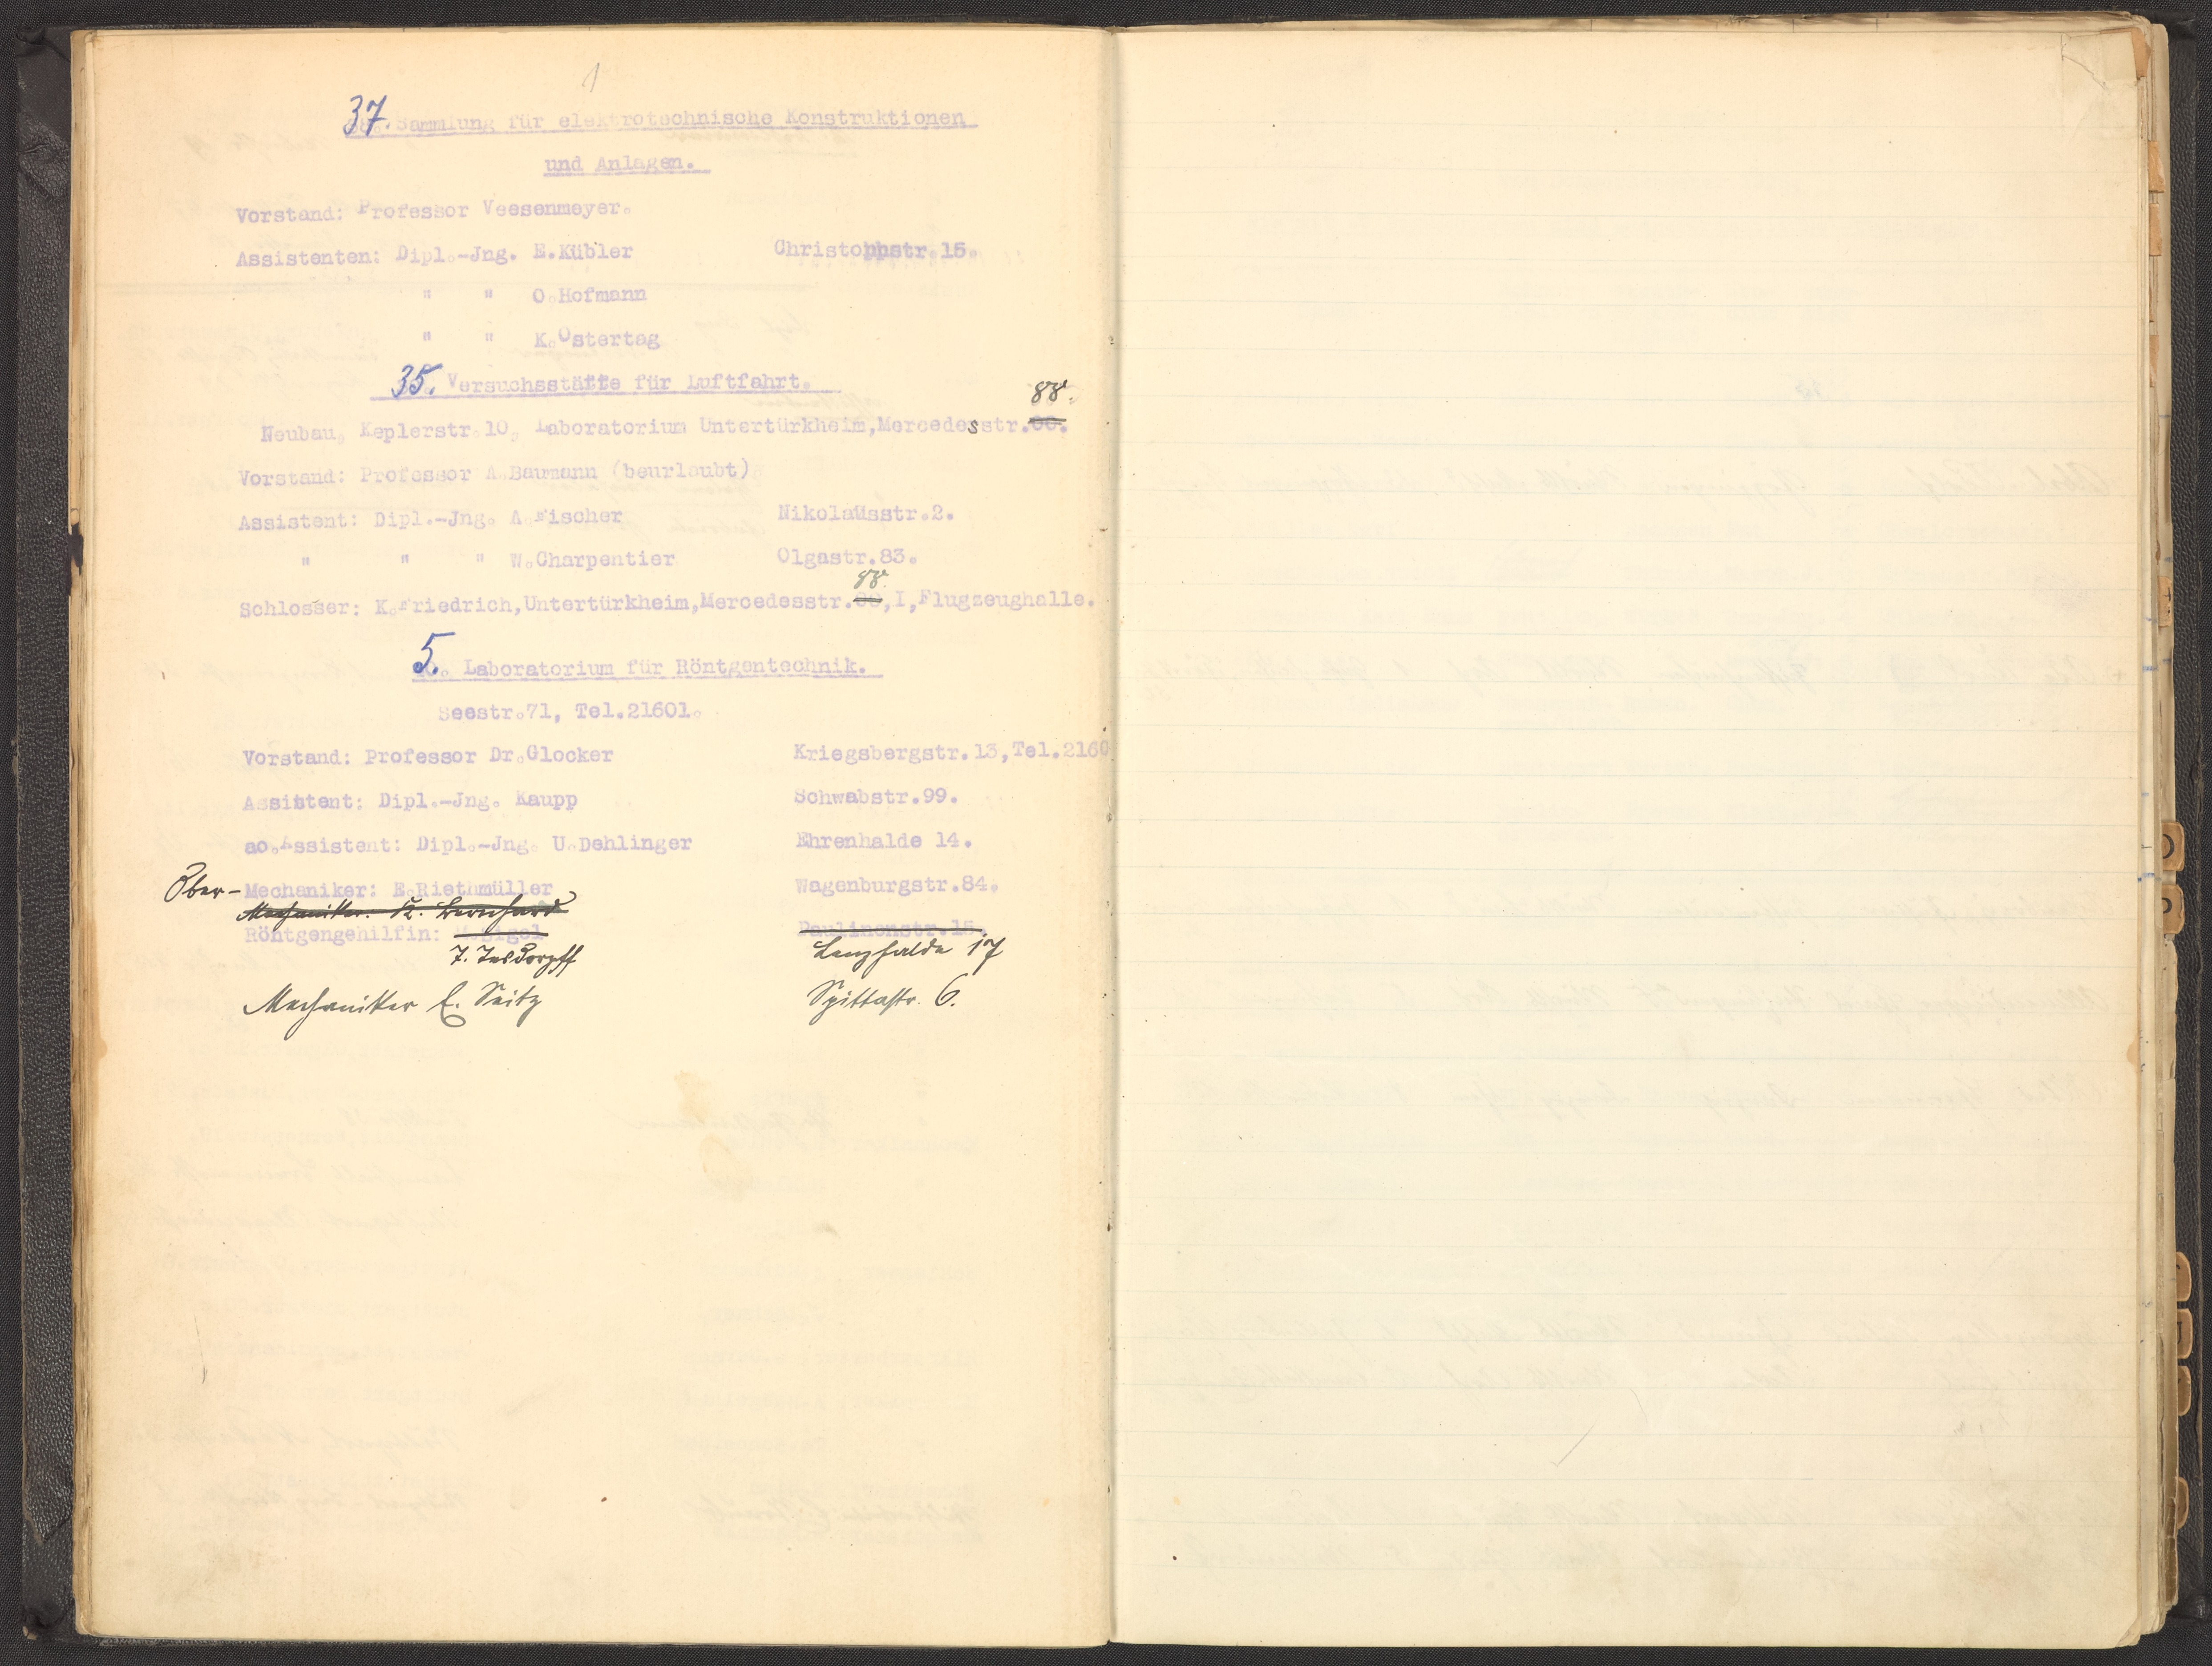 37. Sammlung für elektrotechnische Konstruktionen
und Anlagen.
Vorstand: Professor Veesenmeyer.
Assistenten: Dipl.-Jng. E.Kübler Christophstr.16.
" " O.Hofmann
" " K.Ostertag
35. Versuchsstätte für Luftfahrt.
88.
Neubau, Keplerstr.10, Laboratorium Untertürkheim,Mercedesstr.60.
Vorstand: Professor A.Baumann (beurlaubt)
Assistent: Dipl.-Jng. A.Fischer Nikolausstr.2.
" " " W.Charpentier Olgastr.83.
88.
Schlosser: K.Friedrich,Untertürkheim,Mercedesstr.60,I,Flugzeughalle.
5. Laboratorium für Röntgentechnik.
Seestr.71, Tel.21601.
Vorstand: Professor Dr.Glocker Kriegsbergstr.13,Tel.2160
Assistent: Dipl.-Jng. Kaupp Schwabstr.99.
ao.Assistent: Dipl.-Jng. U.Dehlinger Ehrenhalde 14.
Ober- Mechaniker: E.Riethmüller Wagenburgstr.84.
Mechaniker: K. Bernhard
Röntgengehilfin: Sigel Paulinenstr.15.
Lenzhalde 17
Mechaniker E. Seitz Spittastr. 6.